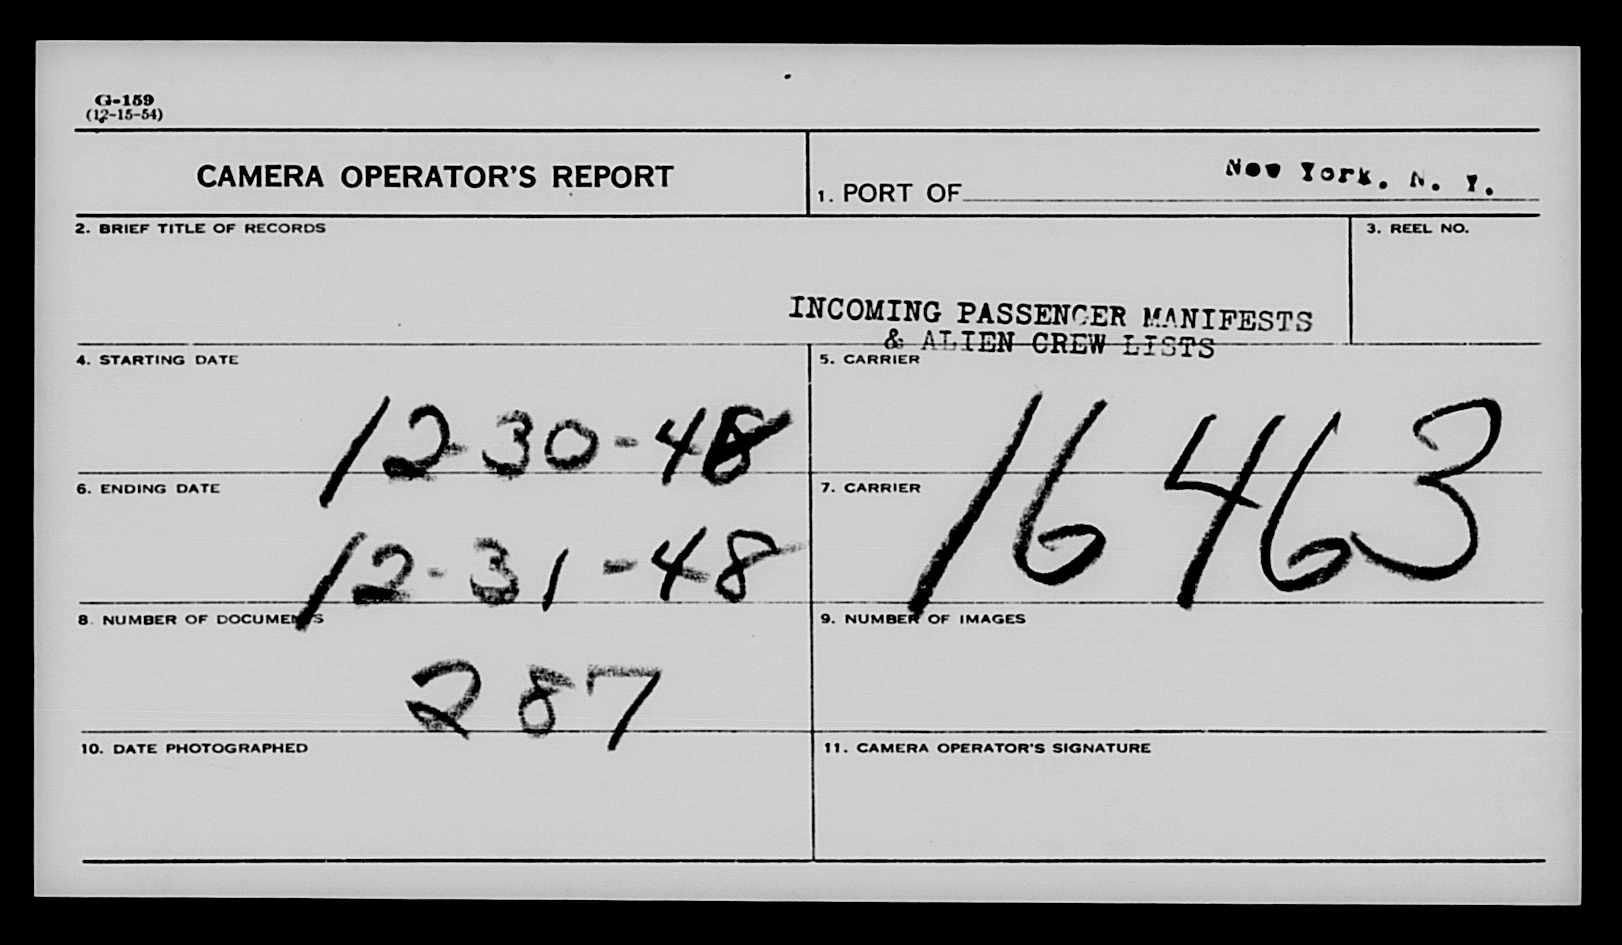 G-159
(12-15-54)
CAMERA OPERATOR'S REPORT
1. PORT OF New York, N. Y.
2. BRIEF TITLE OF RECORDS
3. REEL NO.
INCOMING PASSENGER MANIFESTS
& ALIEN CREW LISTS
4. STARTING DATE
12-30-48
5. CARRIER
16463
6. ENDING DATE
12-31-48
7. CARRIER
8. NUMBER OF DOCUMENTS
287
9. NUMBER OF IMAGES
10. DATE PHOTOGRAPHED
11. CAMERA OPERATOR'S SIGNATURE